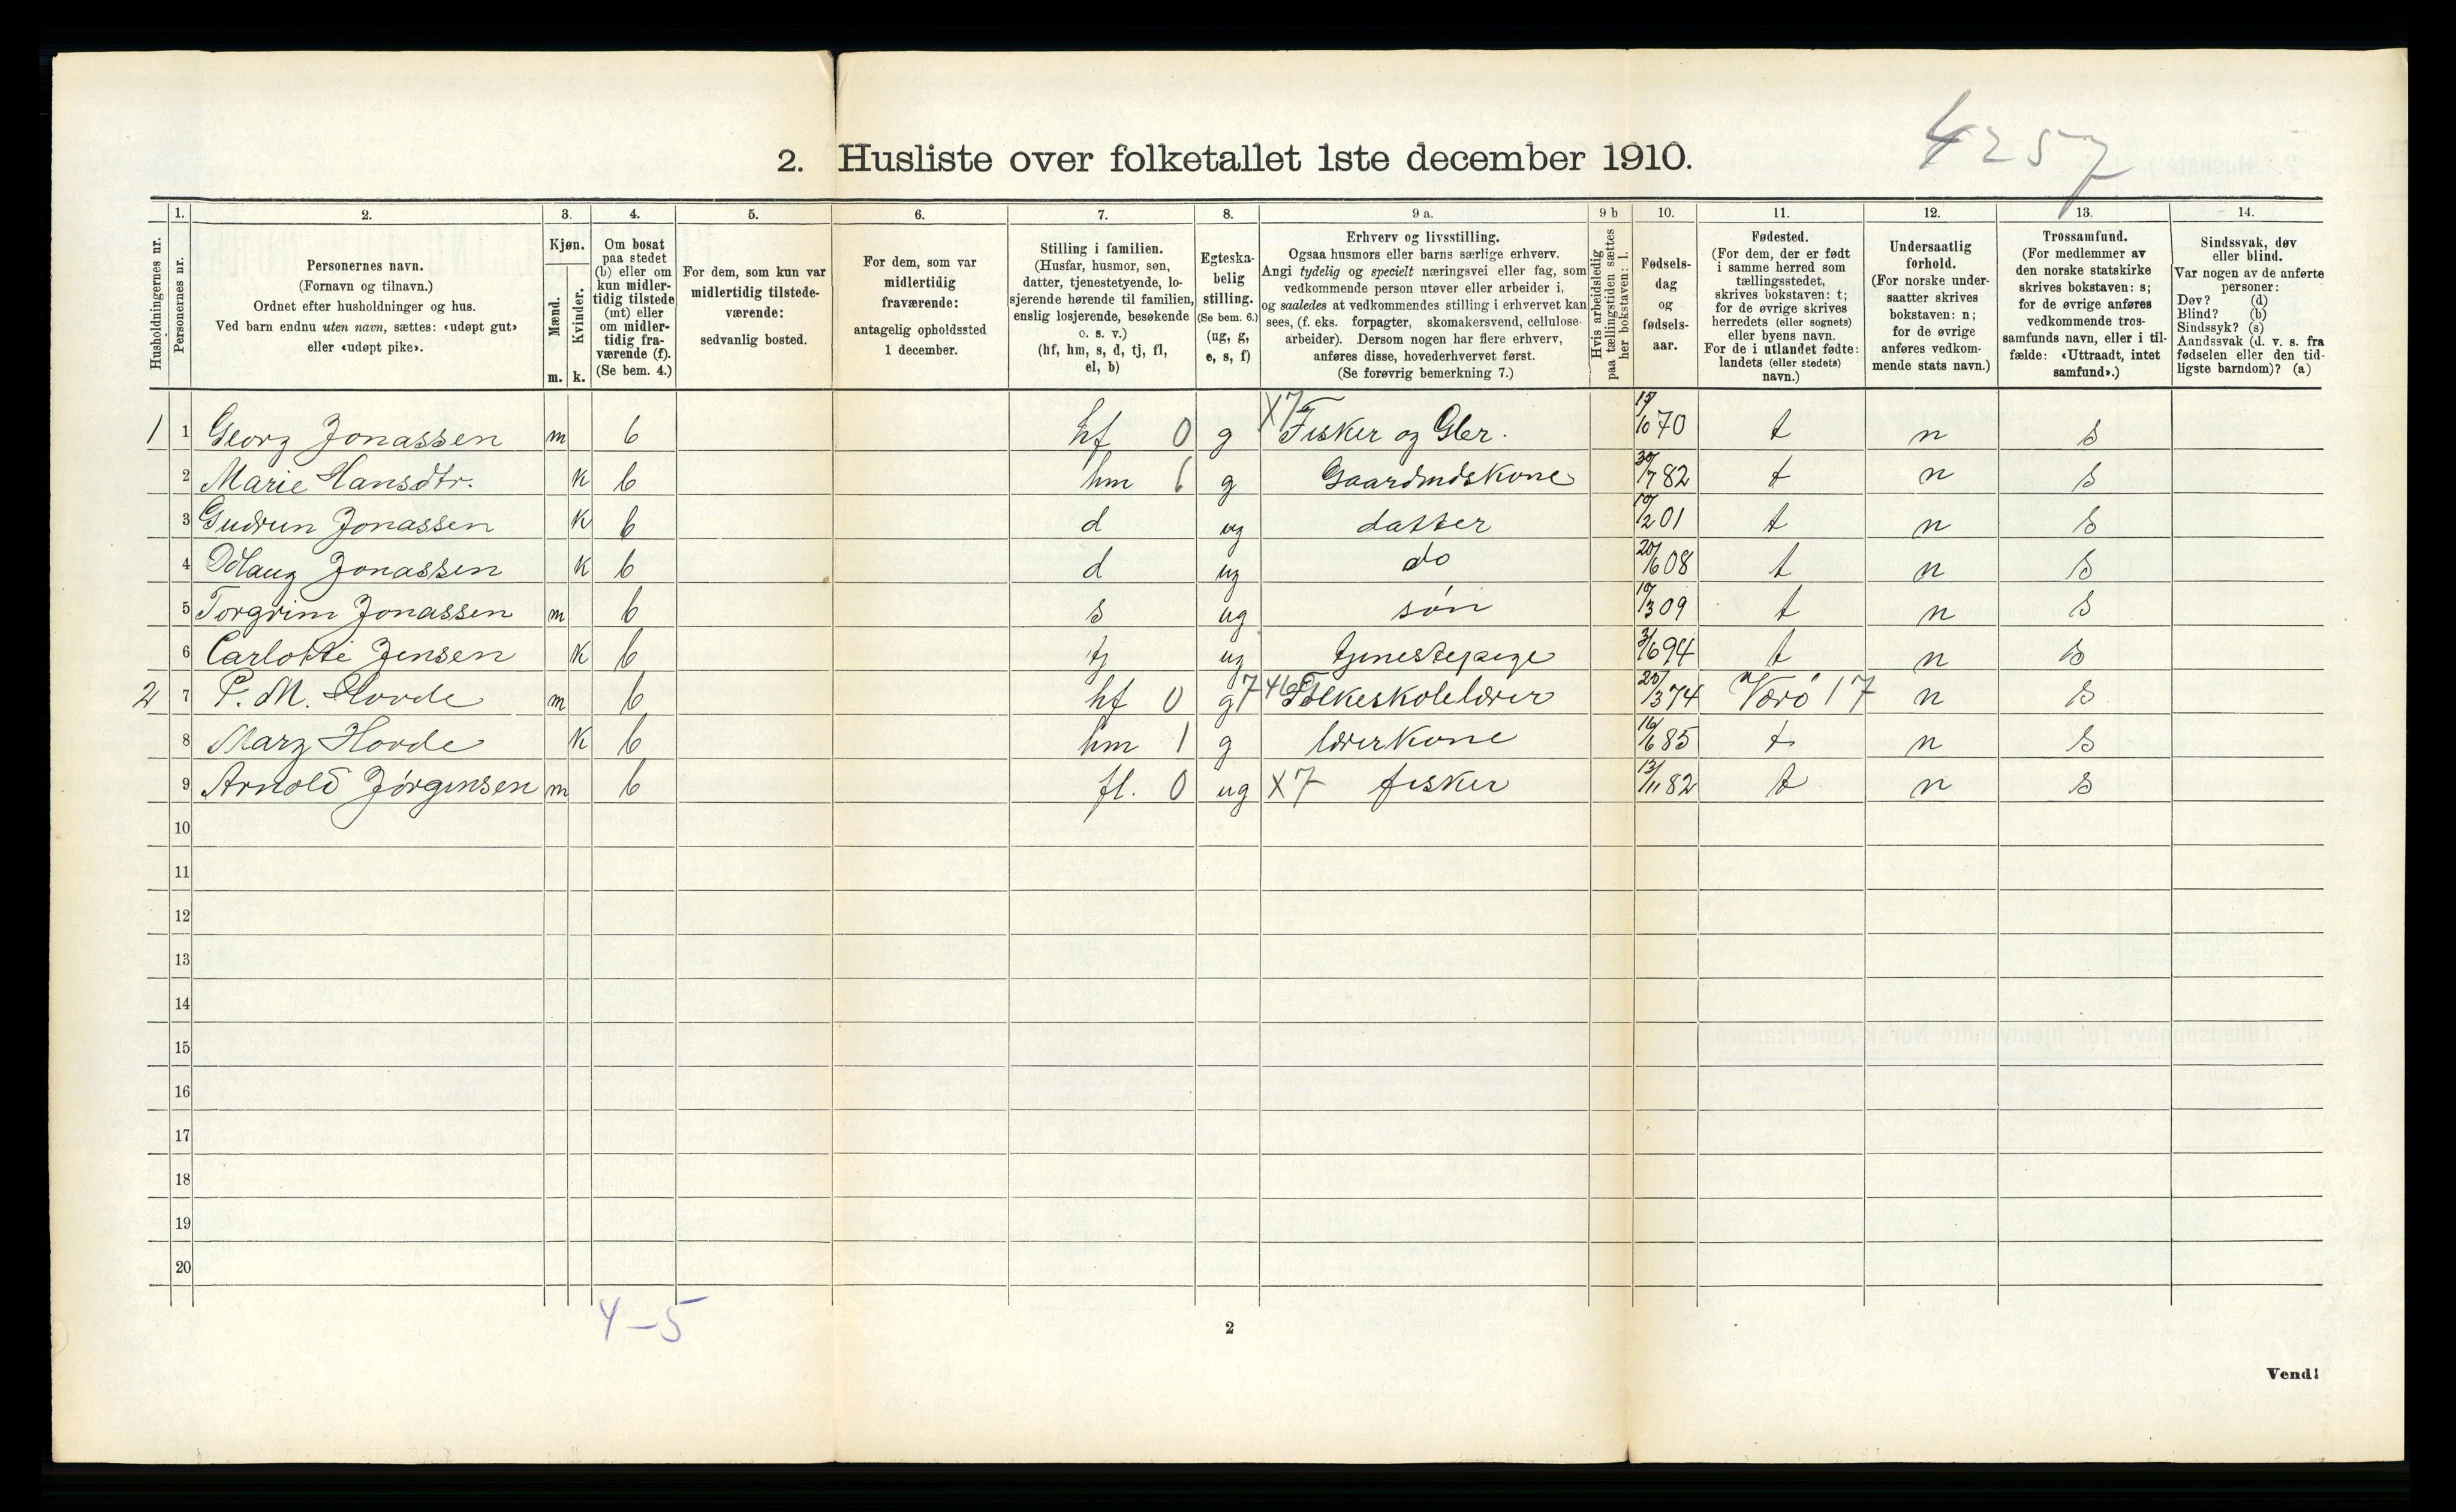 4257
2. Husliste over folketallet 1ste december 1910.
Husholdningernes nr.
1.
Personernes nr.
2.
Personernes navn.
(Fornavn og tilnavn.)
Ordnet efter husholdninger og hus.
Ved barn endnu uten navn, sættes: «udøpt gut»
eller «udøpt pike».
3.
Kjøn.
Mænd.
Kvinder.
m. k.
4.
Om bosat
paa stedet
(b) eller om
kun midler-
tidig tilstede
(mt) eller
om midler-
tidig fra-
værende (f).
(Se bem. 4.)
5.
For dem, som kun var
midlertidig tilstede-
værende:
sedvanlig bosted.
6.
For dem, som var
midlertidig
fraværende:
antagelig opholdssted
1 december.
7.
Stilling i familien.
(Husfar, husmor, søn,
datter, tjenestetyende, lo-
sjerende hørende til familien,
enslig losjerende, besøkende
o. s. v.)
(hf, hm, s, d, tj, fl,
el, b)
8.
Egteska-
belig
stilling.
(Se bem. 6.)
(ug, g,
e, s, f)
9 a.
Erhverv og livsstilling.
Ogsaa husmors eller barns særlige erhverv.
Angi tydelig og specielt næringsvei eller fag, som
vedkommende person utøver eller arbeider i,
og saaledes at vedkommendes stilling i erhvervet kan
sees, (f. eks. forpagter, skomakersvend, cellulose-
arbeider). Dersom nogen har flere erhverv,
anføres disse, hovederhvervet først.
(Se forøvrig bemerkning 7.)
9 b
Hvis arbeidsledig
paa tællingstiden sættes
her bokstaven: l.
10.
Fødsels-
dag
og
fødsels-
aar.
11.
Fødested.
(For dem, der er født
i samme herred som
tællingsstedet,
skrives bokstaven: t;
for de øvrige skrives
herredets (eller sognets)
eller byens navn.
For de i utlandet fødte:
landets (eller stedets)
navn.)
12.
Undersaatlig
forhold.
(For norske under-
saatter skrives
bokstaven: n;
for de øvrige
anføres vedkom-
mende stats navn.)
13.
Trossamfund.
(For medlemmer av
den norske statskirke
skrives bokstaven: s;
for de øvrige anføres
vedkommende tros-
samfunds navn, eller i til-
fælde: «Uttraadt, intet
samfund».)
14.
Sindssvak, døv
eller blind.
Var nogen av de anførte
personer:
Døv? (d)
Blind? (b)
Sindssyk? (s)
Aandssvak (d. v. s. fra
fødselen eller den tid-
ligste barndom)? (a)
1 1 Georg Jonassen m b hf 0 g X7 Fisker og Gbr. 10 70 t n s
2 Marie Hansdtr. k b hm 1 g Gaardmdskone 30/7 82 t n s
3 Gudrun Jonassen k b d ug datter 10/2 01 t n s
4 Odlaug Jonassen k b d ug do 20/6 08 t n s
5 Torgrim Jonassen m b s ug søn 10/3 09 t n s
6 Carlotte Jensen k b tj ug tjenestepige 3/6 94 t n s
2 7 P. M. Hovde m b hf 0 g 7 Folkeskolelærer 20/3 74 Værø 17 n s
8 Marg Hovde k b hm 1 g lærerkone 16/6 85 t n s
9 Arnold Jørgensen m b fl. 0 ug X7 fisker 13/11 82 t n s
10
11
12
13
14
15
16
17
18
19
20
4-5
2
Vend!